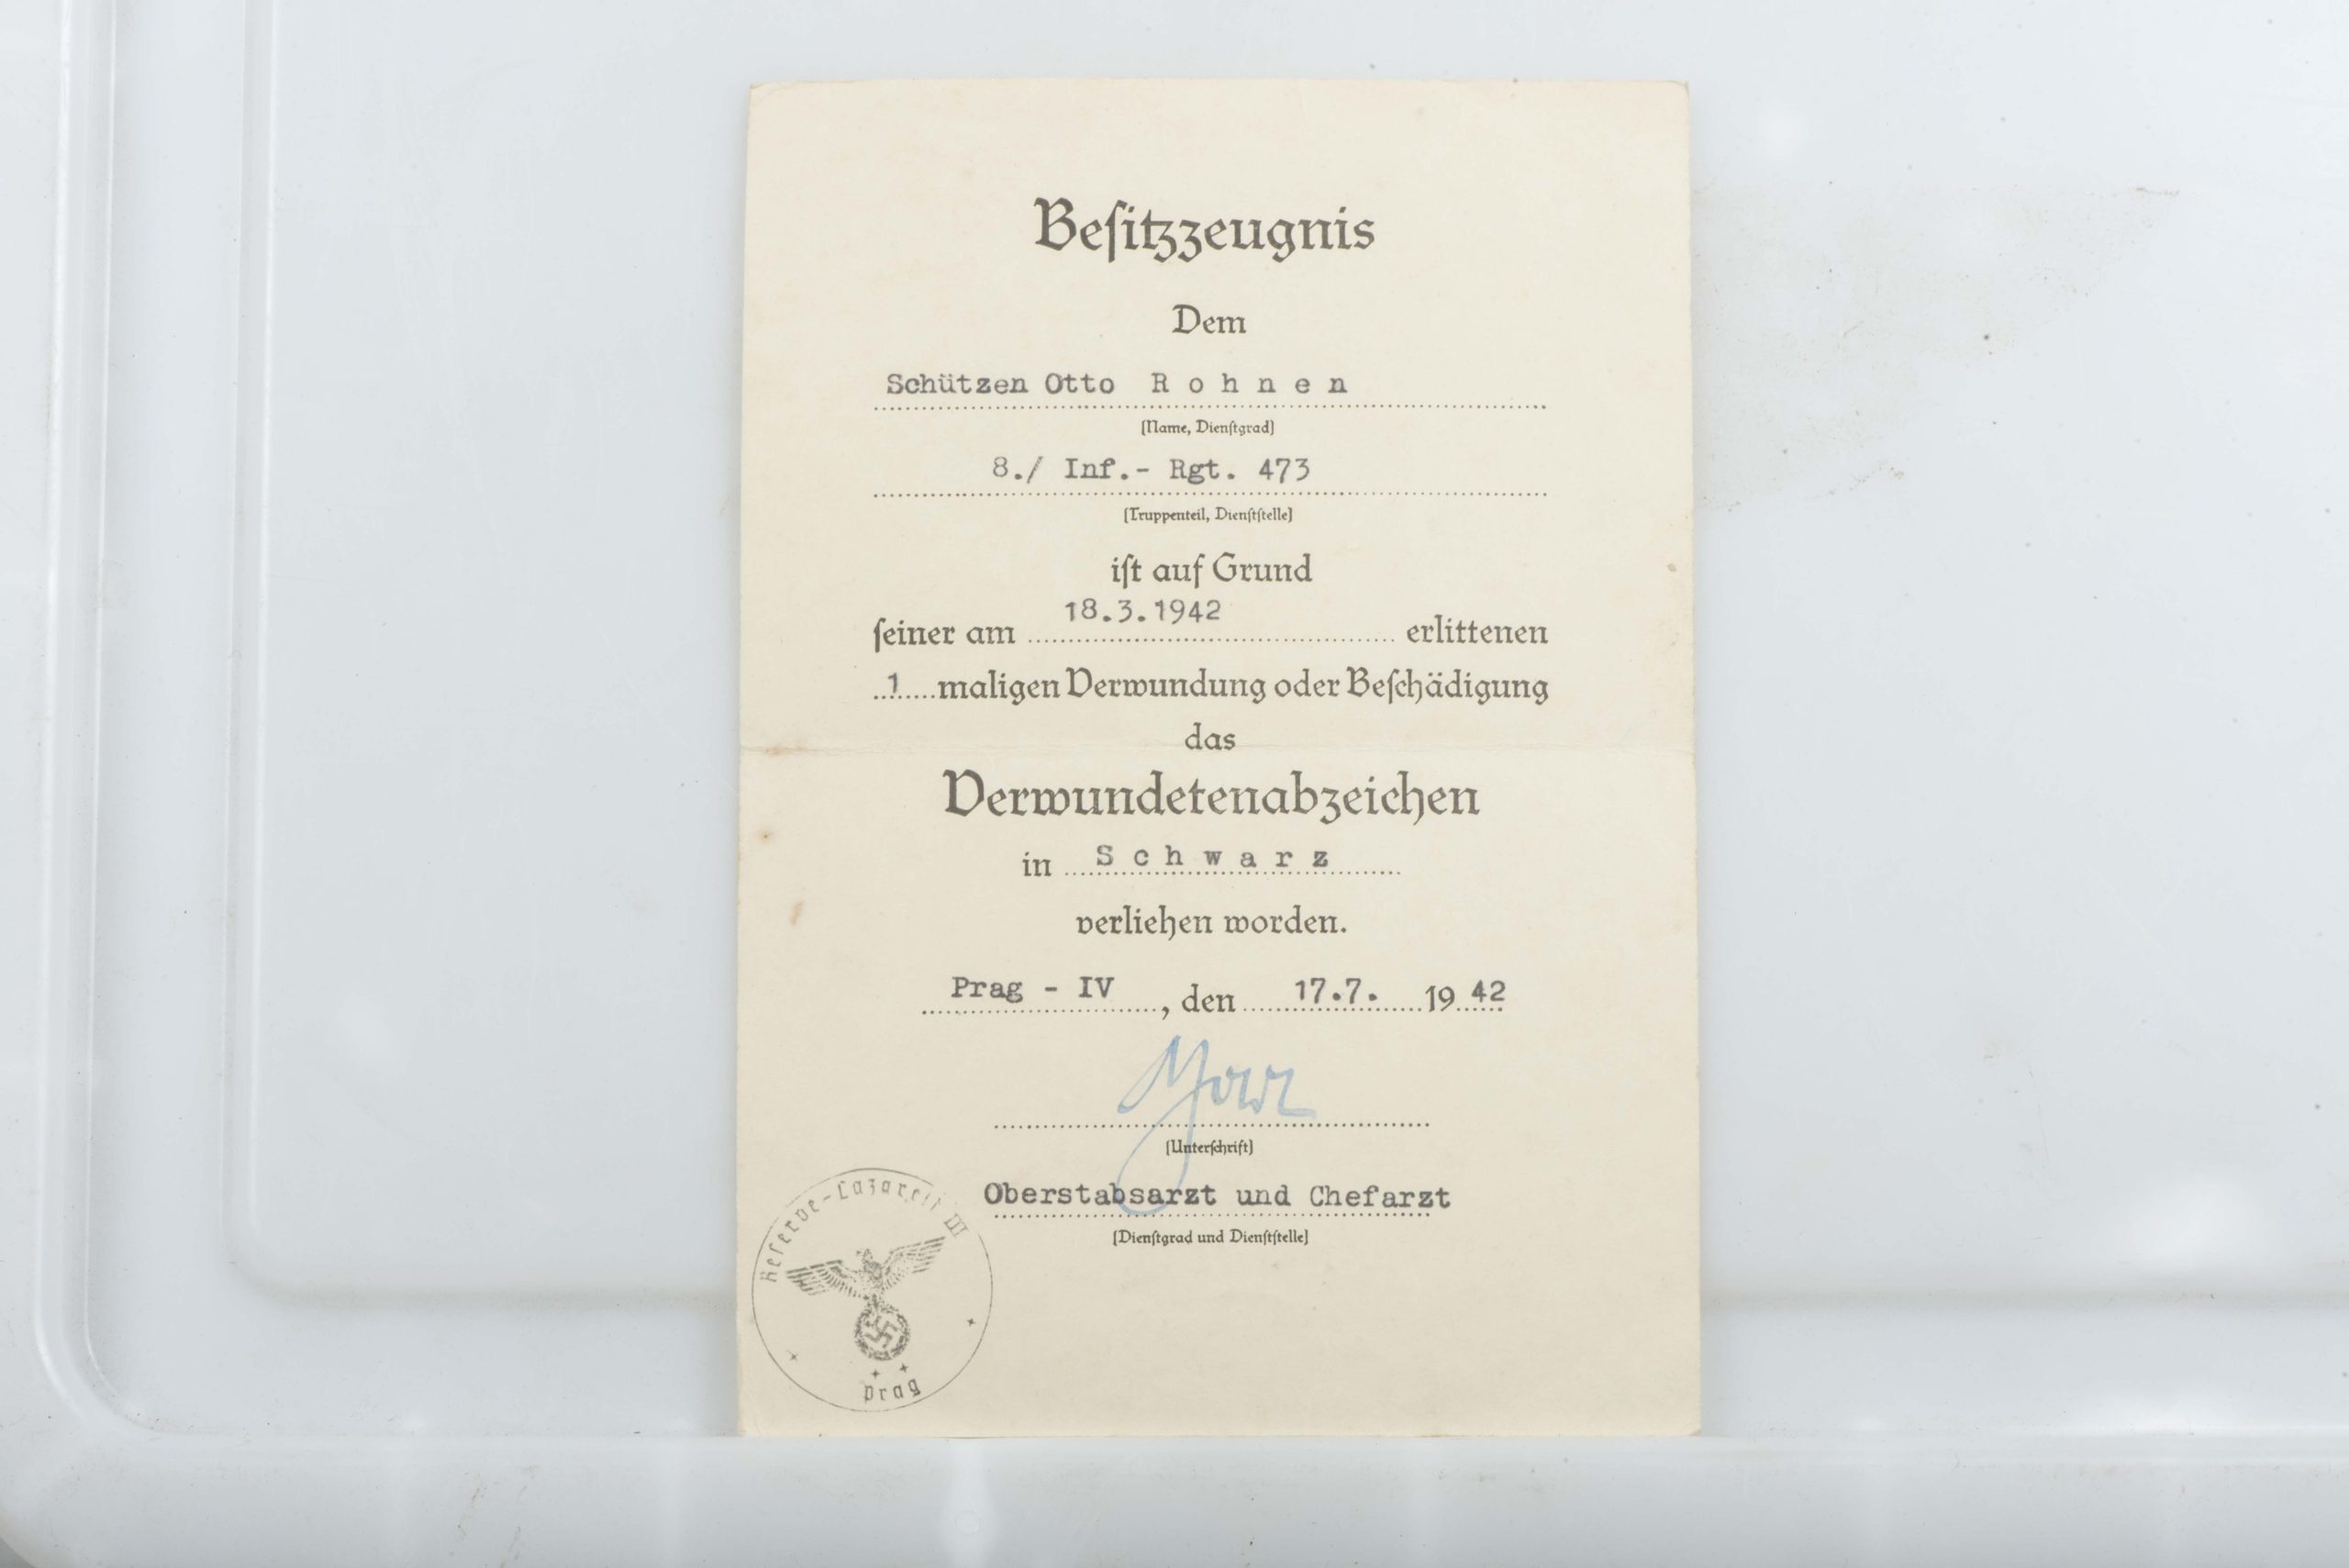 Beſitzzeugnis
Dem
Schützen Otto R o h n e n
(Name, Dienſtgrad)
8./ Inf.- Rgt. 473
(Truppenteil, Dienſtſtelle)
iſt auf Grund
ſeiner am 18.3.1942 erlittenen
1 maligen Verwundung oder Beſchädigung
das
Verwundetenabzeichen
in S c h w a r z
verliehen worden.
Prag - IV, den 17.7. 1942
(Unterſchrift)
Oberstabsarzt und Chefarzt
(Dienſtgrad und Dienſtſtelle)
Reſerve-Lazarett III
Prag